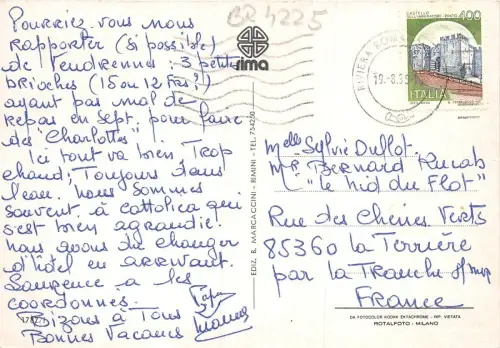 Pourriez-vous nous
rapporter (si possible)
de Vendrennes: 3 petites
brioches (15 ou 12 Frs?)
ayant pas mal de
repas en Sept. pour faire
des "Charlottes".
Ici tout va bien, Trop
chaud; Toujours dans
l'eau. Nous sommes
souvent à Cattolica qui
s'est bien agrandie.
Nous avons dû changer
d'hôtel en arrivant.
Laurence a les
coordonnées.
Bizous à Tous
Bonnes Vacances
Papa
Maman
BR 4225
rima
EDIZ. B. MARCACCINI - RIMINI - TEL.
400
ITALIA
RIVIERA
Melle Sylvie Dullot
Mr Bernard
"Le Nid du Flot"
Rue des Chênes Verts
85360 La Terrière
par La Tranche s/mer
France
DA FOTOCOLOR KODAK EKTACHROME - RIP. VIETATA
ROTALFOTO - MILANO